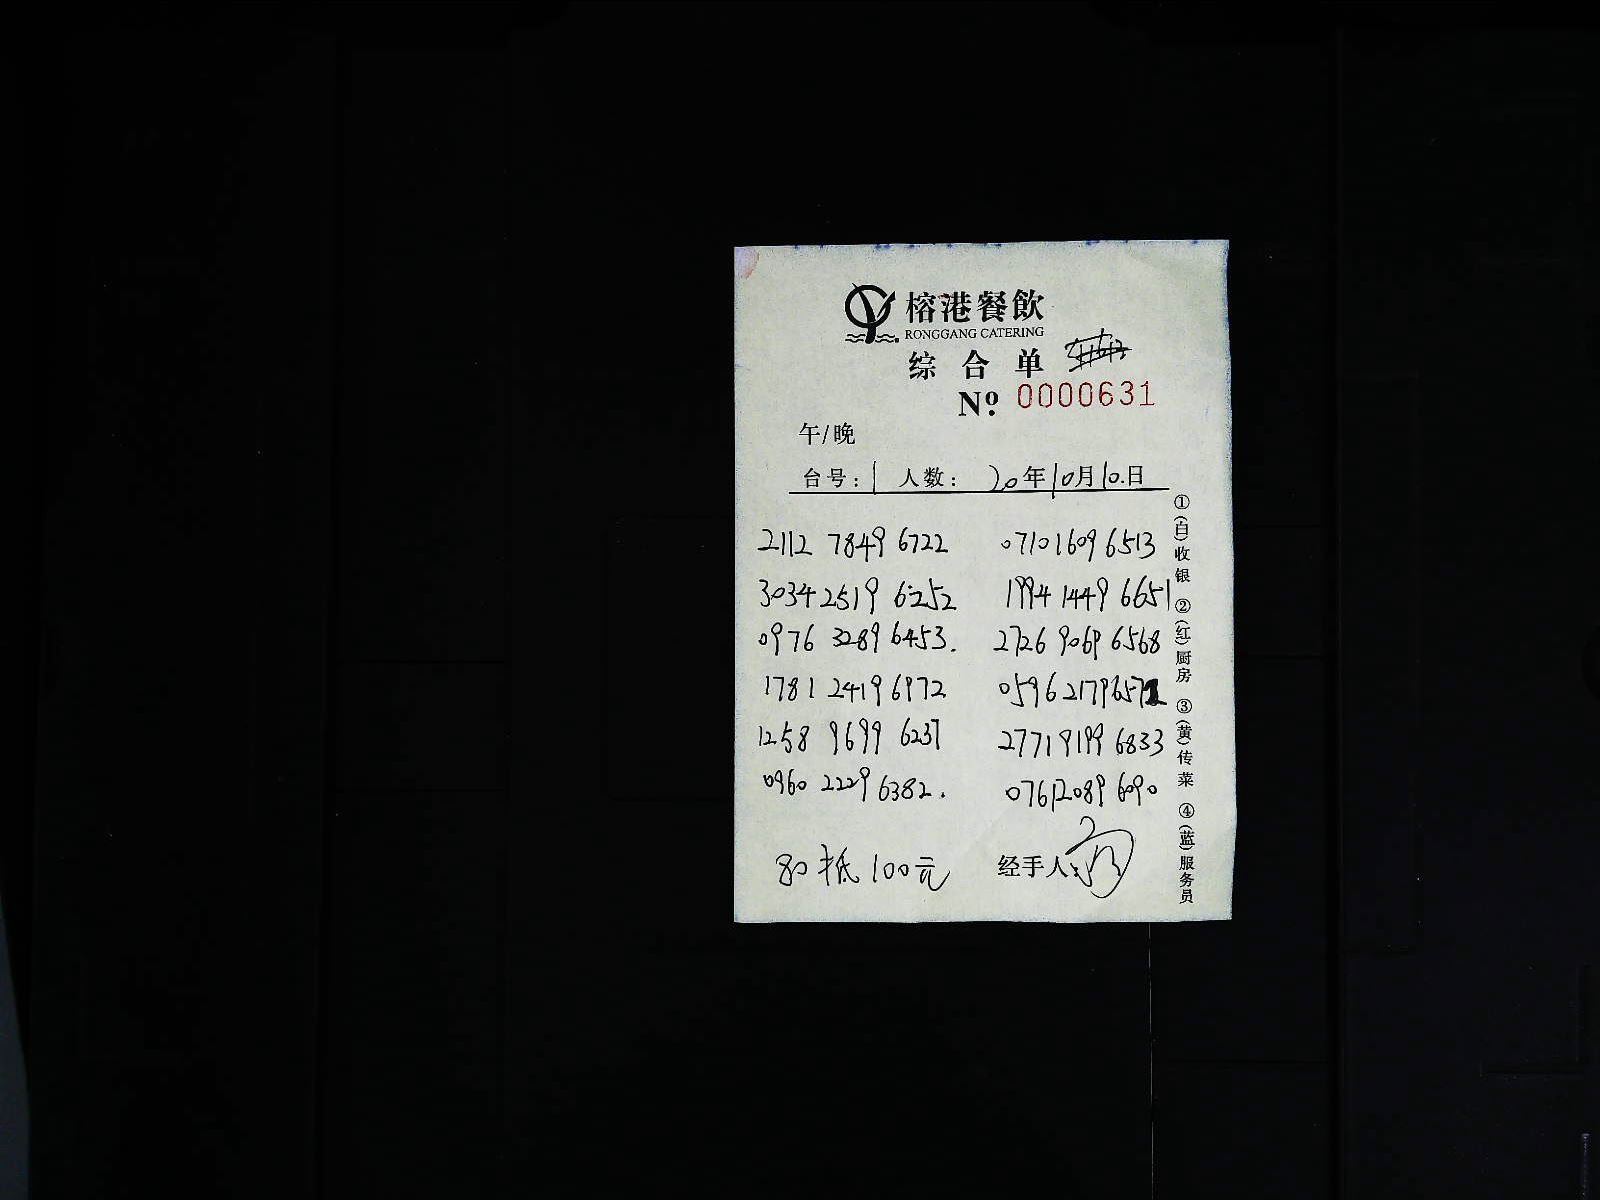 榕港餐飲
RONGGANG CATERING
综合单
Nº 0000631
午/晚
台号：1 人数： 20年10月10.日
2112 7849 6722 0710 1609 6513
3034 2519 6252 1994 1449 6651
0976 3289 6453. 2726 9069 6568
1781 2419 6972 0596 2179 6571
1258 9699 6237 2771 9199 6833
0960 2229 6382. 0761 2089 6090
80抵100元 经手人:
①(白)收银 ②(红)厨房 ③(黄)传菜 ④(蓝)服务员